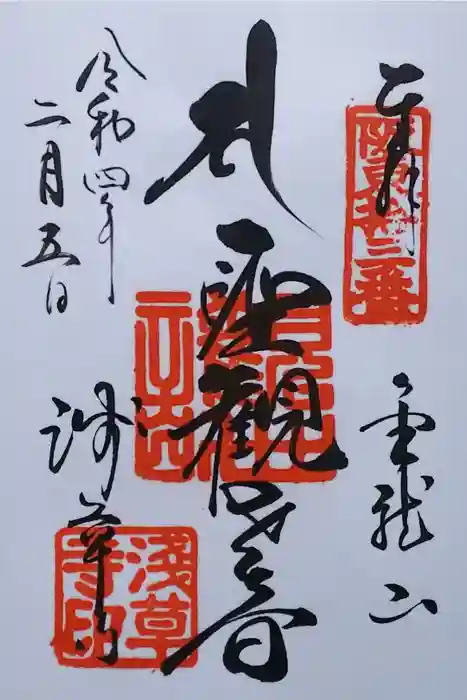 奉拝
坂東十三番
金龍山
聖観世音
令和四年
二月五日
浅草寺
浅草寺印